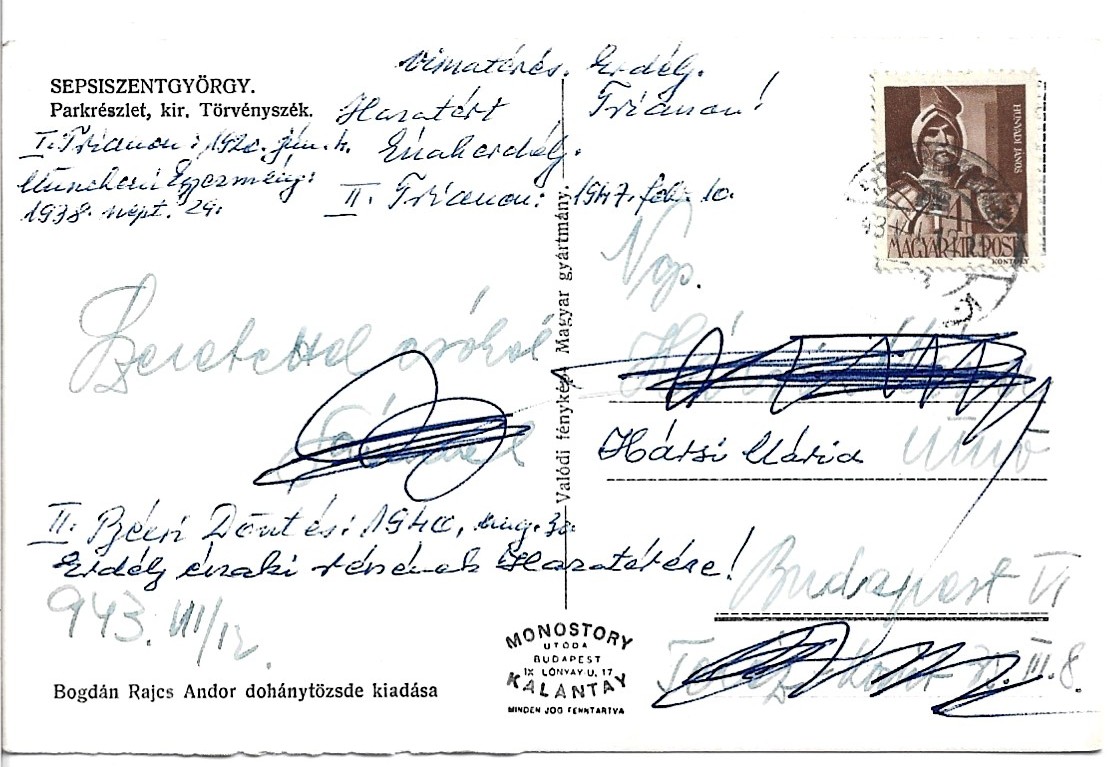 SEPSISZENTGYÖRGY.
Parkrészlet, kir. Törvényszék.
Erdély.
Hazatért
Trianon!
I. Trianon: 1920. jún. 4.
Északerdély.
1938. szept. 29.
II. Trianon: 1947. feb. 10.
HUNYADI JÁNOS
4
MAGYAR·KIR·POSTA
KONTULY
Nagys.
Szeretettel csókol
Valódi fénykép. Magyar gyártmány.
Hársi Mária
úrnő
II. Bécsi Döntés: 1940. aug. 30
Erdély északi részének Hazatérése!
Budapest VI
943. VIII/12.
III. 8.
MONOSTORY
UTÓDA
BUDAPEST
IX LÓNYAY U. 17
KALANTAY
MINDEN JOG FENNTARTVA
Bogdán Rajcs Andor dohánytőzsde kiadása